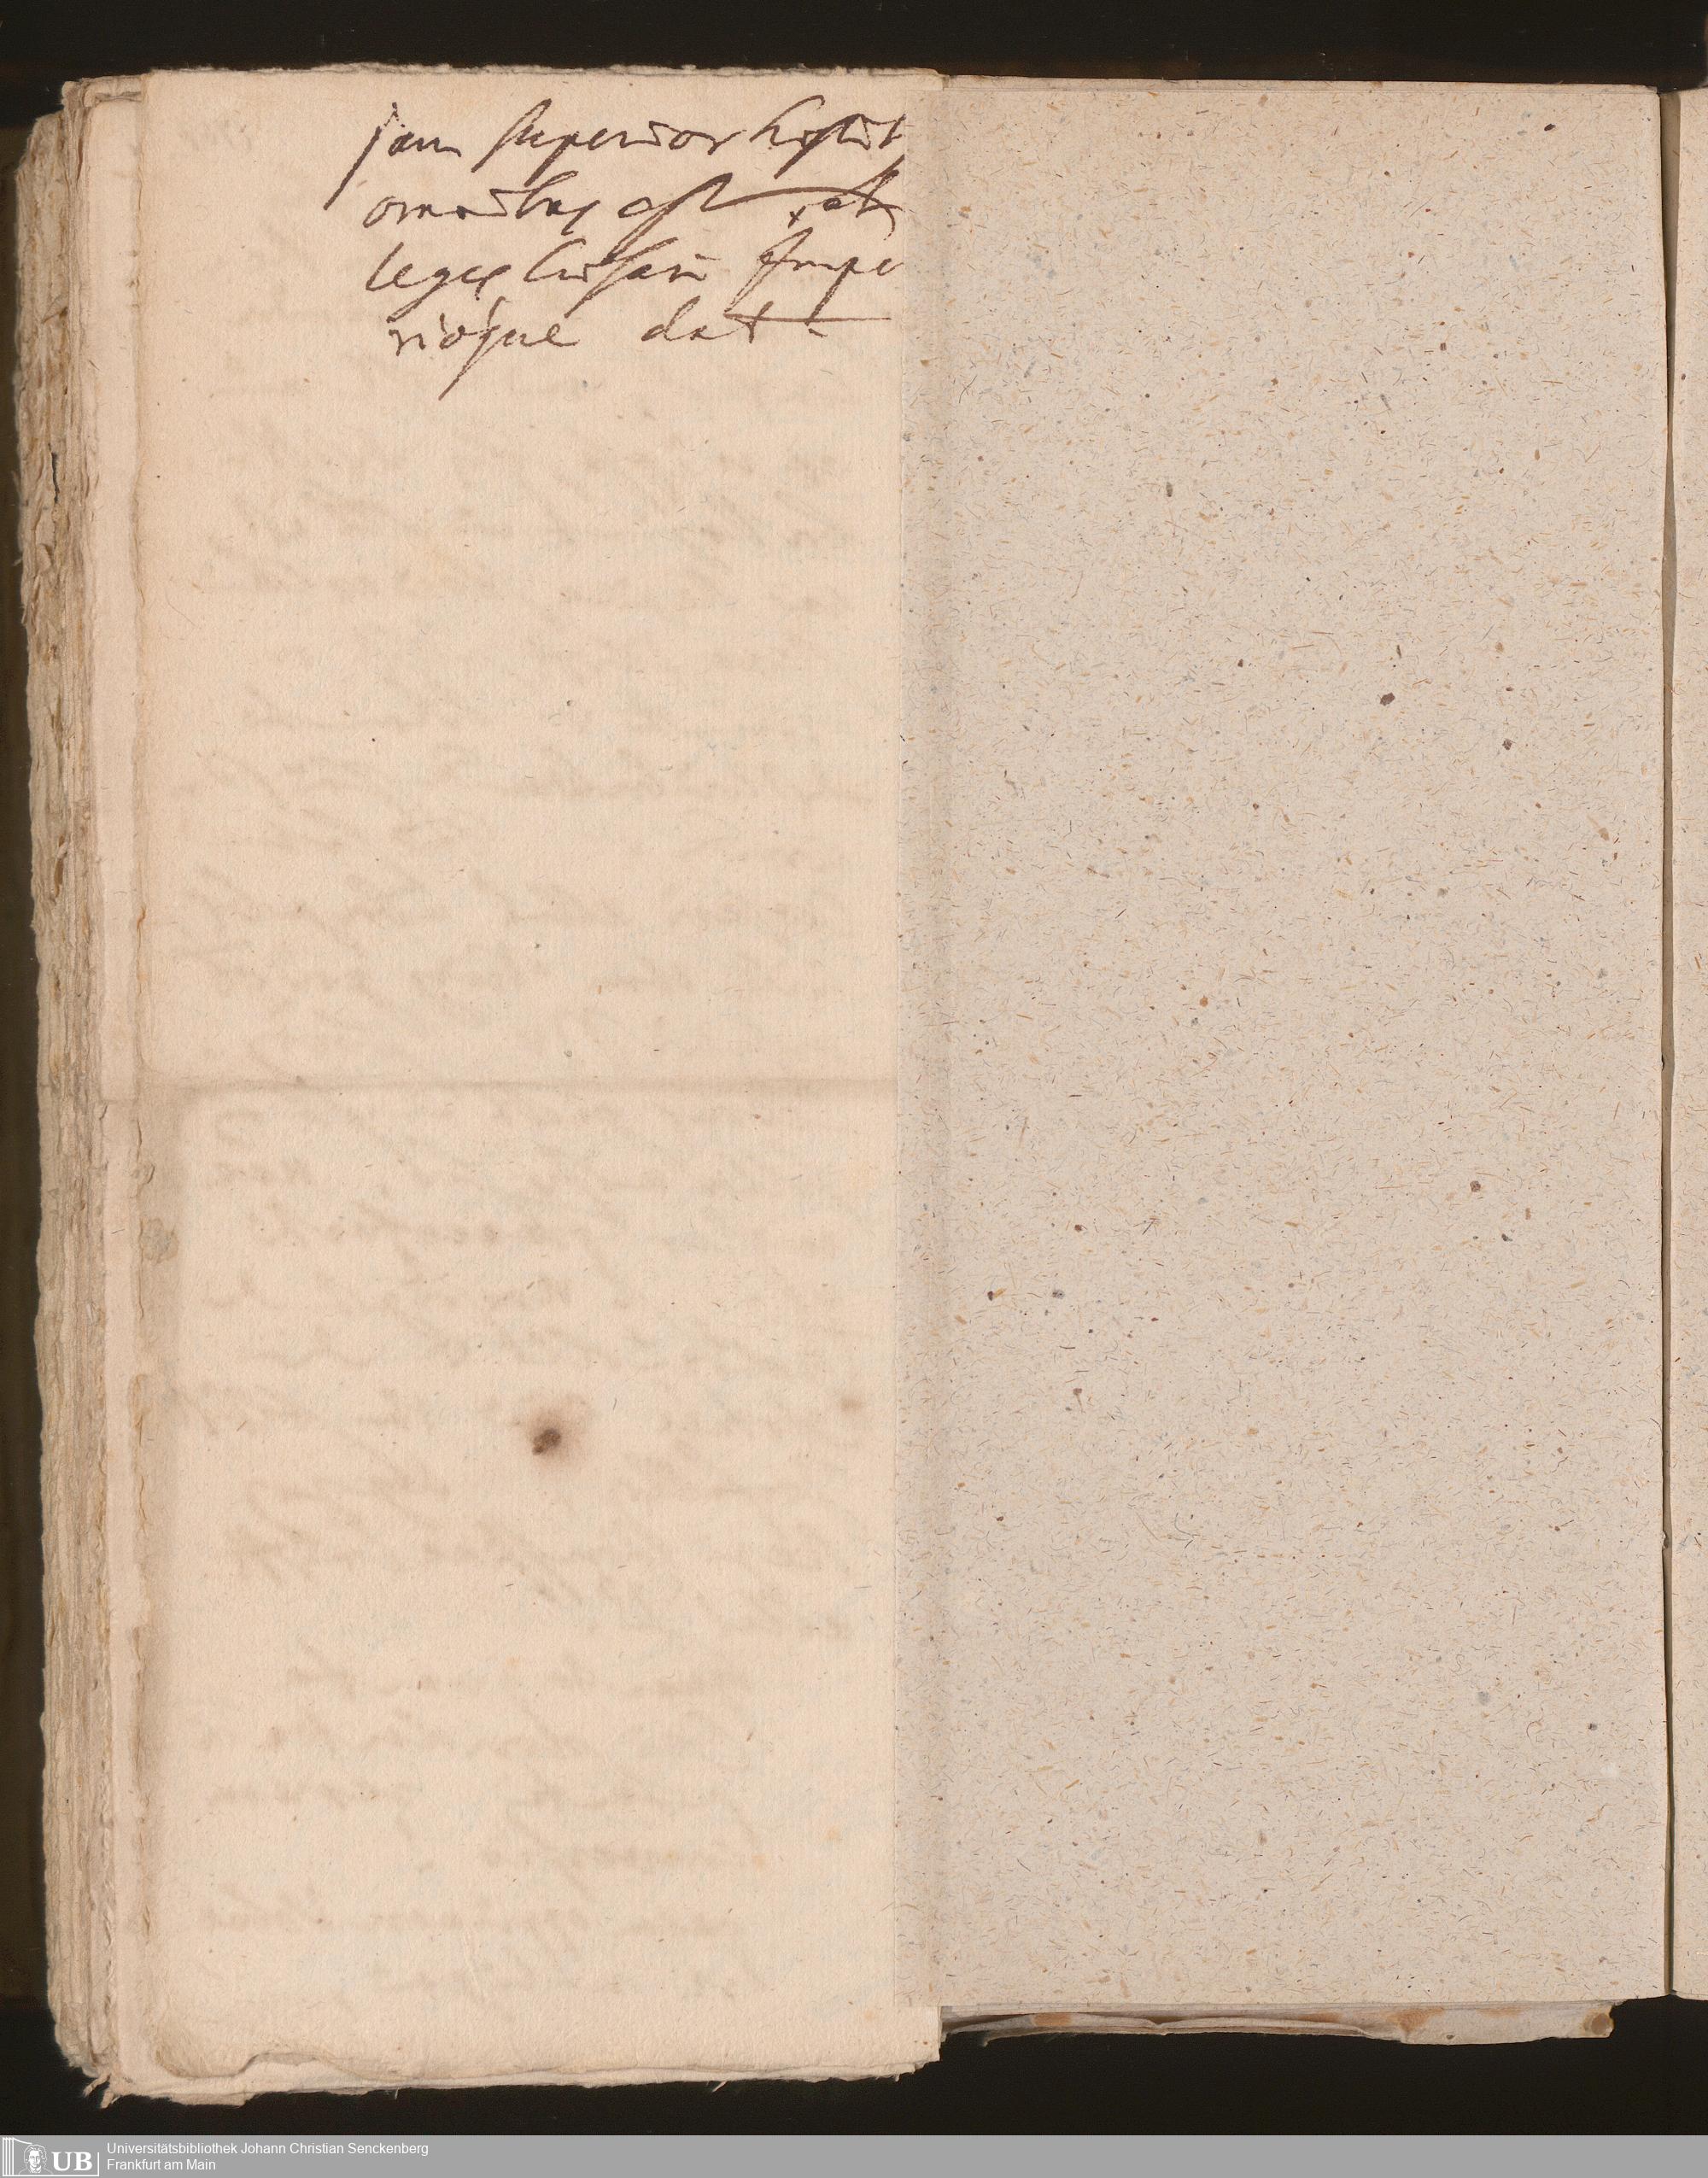 jam superior
omnibus est et
leges Caesari Impe
rioque dat
Universitätsbibliothek Johann Christian Senckenberg
Frankfurt am Main
UB